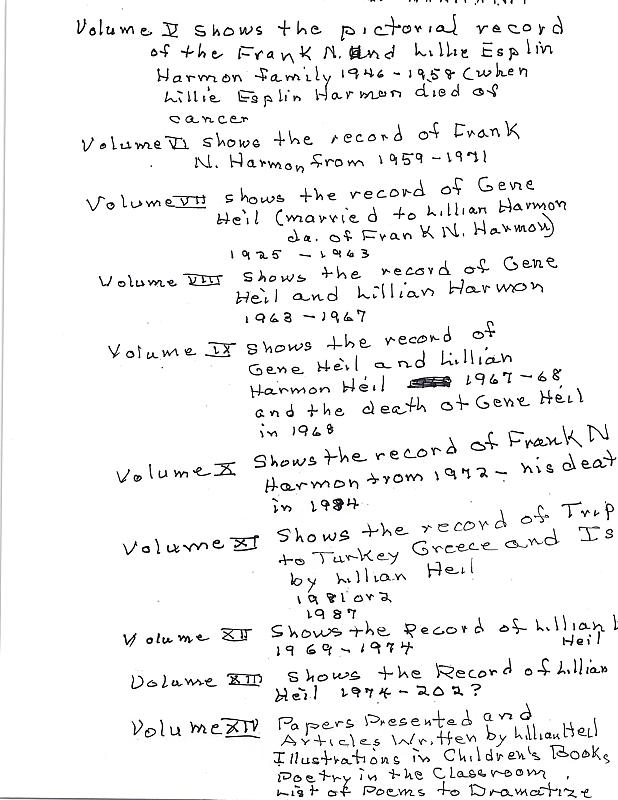 Volume V shows the pictorial record
of the Frank N. and Lillie Esplin
Harmon family 1946-1958 (when
Lillie Esplin Harmon died of
cancer
Volume VI shows the record of Frank
N. Harmon from 1959-1971
Volume VII shows the record of Gene
Heil (married to Lillian Harmon
da. of Frank N. Harmon)
1925 - 1963
Volume VIII shows the record of Gene
Heil and Lillian Harmon
1963-1967
Volume IX Shows the record of
Gene Heil and Lillian
Harmon Heil 1967-68
and the death of Gene Heil
in 1968
Volume X Shows the record of Frank N
Harmon from 1972- his deat
in 1984
Volume XI Shows the record of Trip
to Turkey Greece and Is
by Lillian Heil
1981 or 2
1987
Volume XII Shows the Record of Lillian
Heil
1969-1974
Volume XIII shows the Record of Lillian
Heil 1974-202?
Volume XIV Papers Presented and
Articles Written by Lillian Heil
Illustrations in Children's Books,
Poetry in the Classroom,
List of Poems to Dramatize